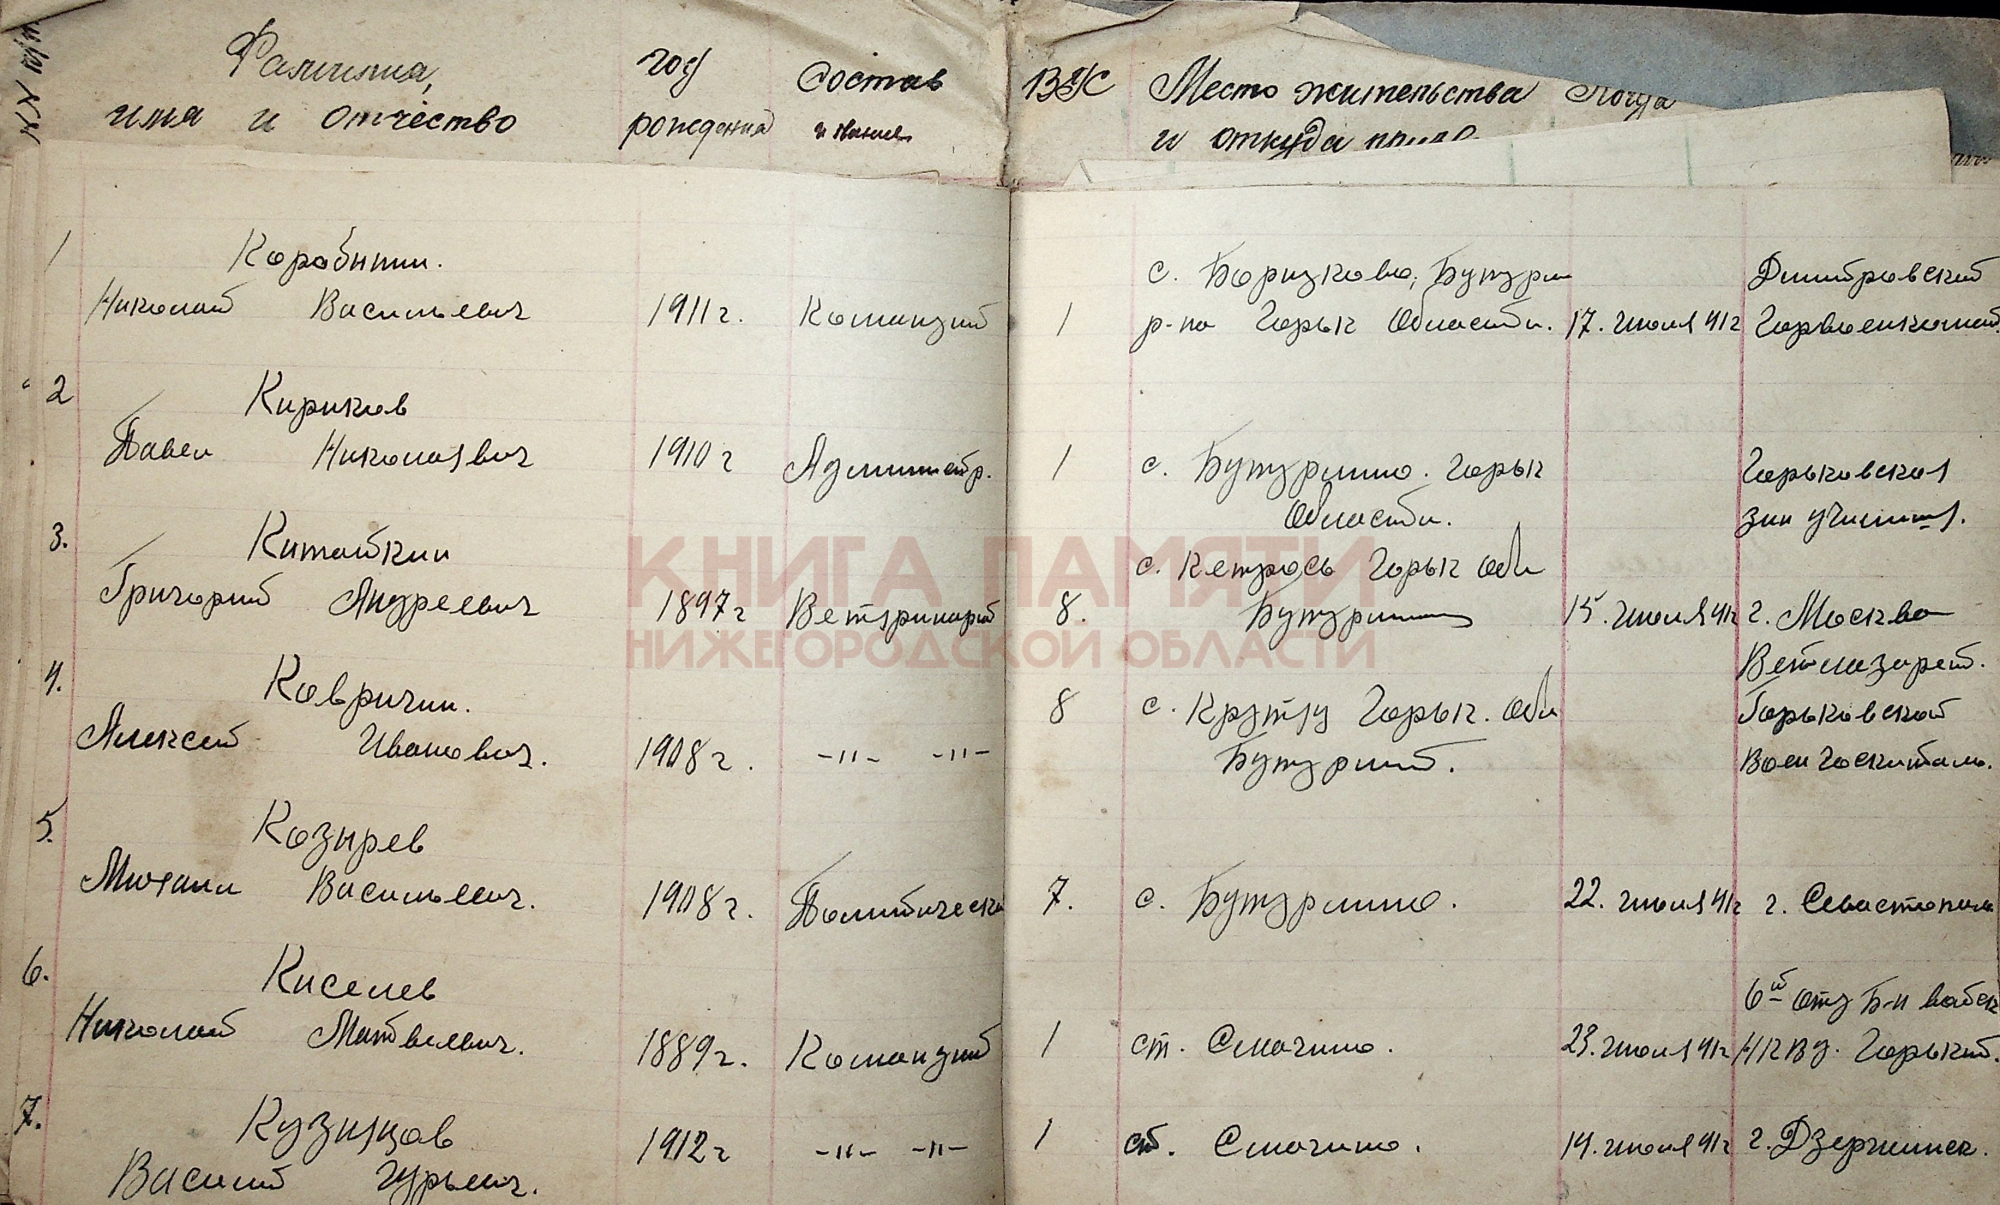 NN п/п
Фамилия,
имя и отчество
год
рождения
Состав
и звание
ВУС
Место жительства
и откуда
Когда
1
Коробитин.
Николай Васильевич
1911 г.
Командный
1
с. Борисково, Бутурлин
р-на Горьк Области.
17. июля 41 г
Дмитровский
Горвоенкомат.
2
Кириков
Павел Николаевич
1910 г
Администр.
1
с. Бутурлино. Горьк
Области.
Горьковская
зин училищ.
3.
Китайкин
Григорий Андреевич
1897 г
Ветеринарн
8.
с. Кетрось Горьк Обл
Бутурлин
15. июля 41 г
г. Москва
Ветлазарет.
4.
Ковригин.
Алексей Иванович.
1908 г.
-"- -"-
8
с. Крутец Горьк. Обл
Бутурлин.
Горьковской
Воен Госпиталь.
5.
Козырев
Михаил Васильевич.
1908 г.
Политически
7.
с. Бутурлино.
22. июля 41 г
г. Севастополь
6.
Киселев
Николай Матвеевич.
1889 г.
Командный
1
ст. Смагино.
23. июля 41 г
6й отд Б-н войск
НКВД. Горький.
7.
Кузнецов
Василий Гурьевич.
1912 г
-"- -"-
1
ст. Смагино.
14. июля 41 г
г. Дзержинск.
КНИГА ПАМЯТИ
НИЖЕГОРОДСКОЙ ОБЛАСТИ